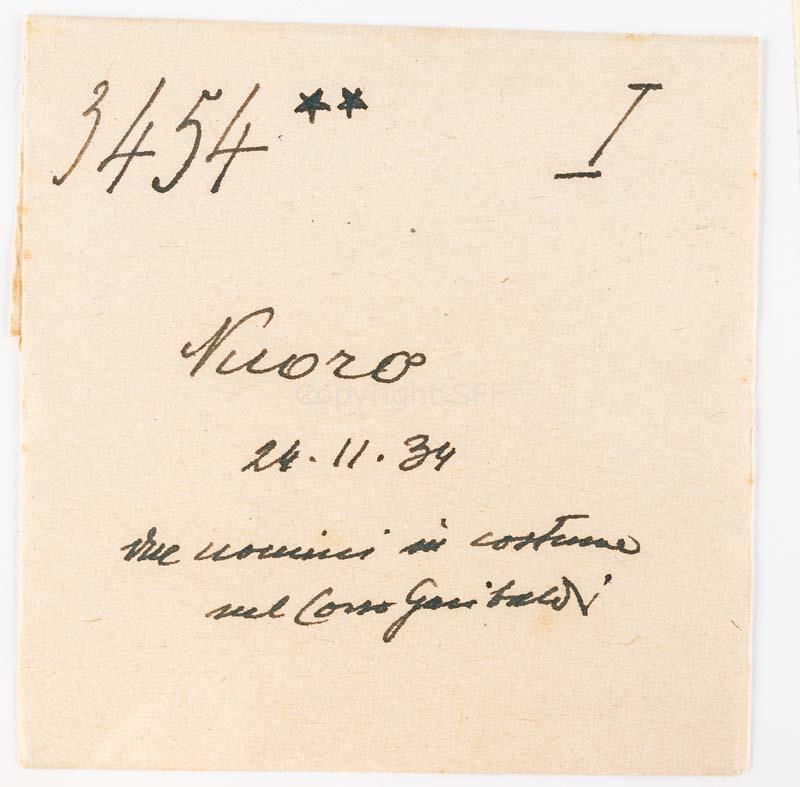 3454 ** I
Nuoro
24.11.34
due uomini in costume
nel Corso Garibaldi
Copyright SFF